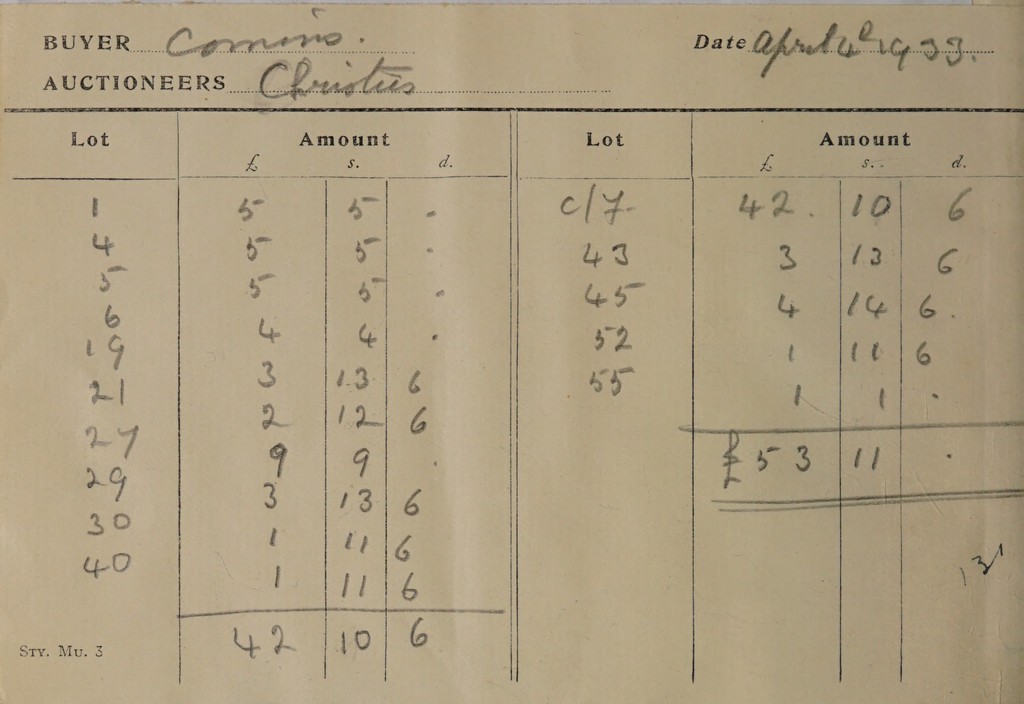 BUYER Comins. Date April 4th 1933.
AUCTIONEERS Christies
Lot Amount Lot Amount
£ s. d. £ s. d.
1 5 5 . c/7 42. 10 6
4 5 5 . 43 3 13 6
5 5 5 . 45 4 14 6.
6 4 4 . 52 1 11 6
19 3 13 6 55 1 1 .
21 2 12 6 £53 11 .
27 9 9 .
29 3 13 6
30 1 11 6
40 1 11 6
42 10 6
STY. MU. 3